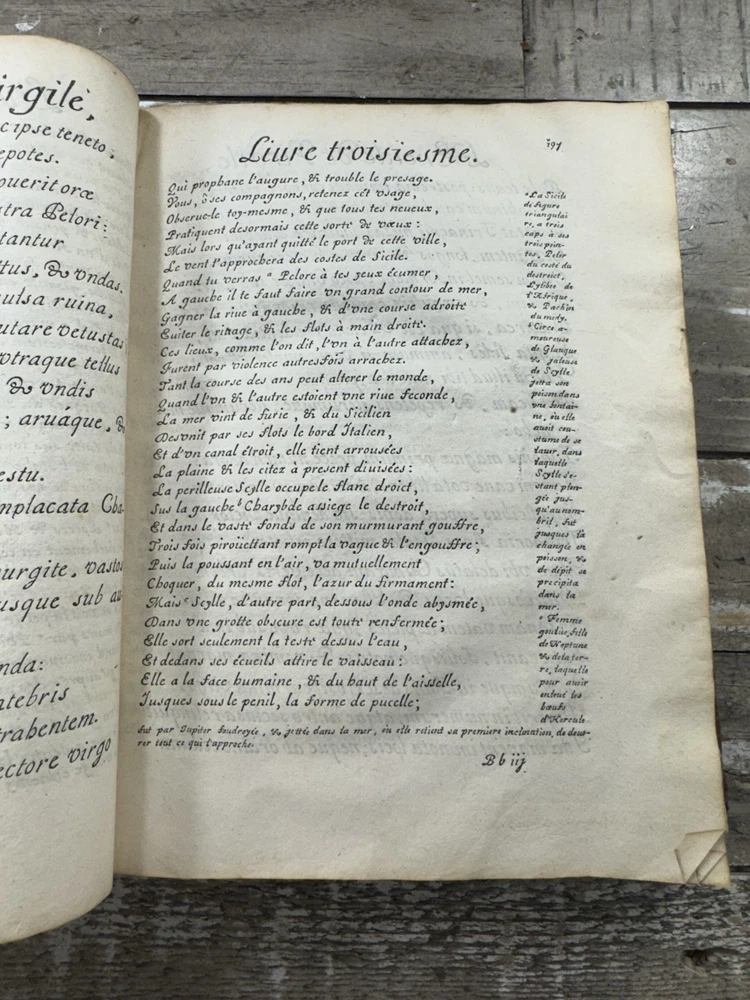 irgile,
c ipse teneto:
epotes.
ouerit oræ
stra Pelori:
tantur
ttus, & vndas.
ulsa ruina,
utare vetustas
vtraque tellus
& vndis
; aruáque, &
estu.
mplacata Cha-
urgite, vastos
usque sub au-
nda:
ntebris
trahentem.
ectore virgo
Liure troisiesme.
197
Qui prophane l'augure, & trouble le presage.
Vous, ô ses compagnons, retenez cét vsage,
Obserue-le toy-mesme, & que tous tes neueux,
Pratiquent desormais cette sorte de vœux:
Mais lors qu'ayant quitté le port de cette ville,
Le vent t'approchera des costes de Sicile.
Quand tu verras ᵃ Pelore à tes yeux écumer,
A gauche il te faut faire vn grand contour de mer,
Gagner la riue à gauche, & d'vne course adroite
Euiter le riuage, & les flots à main droite.
Ces lieux, comme l'on dit, l'vn à l'autre attachez,
Furent par violence autresfois arrachez.
Tant la course des ans peut alterer le monde,
Quand l'vn & l'autre estoient vne riue feconde,
La mer vint de furie, & du Sicilien
Desvnit par ses flots le bord Italien,
Et d'vn canal étroit, elle tient arrousées
La plaine & les citez à present diuisées:
La perilleuse Scylle occupe le flanc droict,
Sus la gauche ᵇ Charybde assiege le destroit,
Et dans le vaste fonds de son murmurant gouffre,
Trois fois piroüettant rompt la vague & l'engouffre;
Puis la poussant en l'air, va mutuellement
Choquer, du mesme flot, l'azur du firmament:
Mais ᶜ Scylle, d'autre part, dessous l'onde abysmée,
Dans vne grotte obscure est toute renfermée;
Elle sort seulement la teste dessus l'eau,
Et dedans ses écueils attire le vaisseau:
Elle a la face humaine, & du haut de l'aisselle,
Jusques sous le penil, la forme de pucelle;
ᵃ La Sicile
de figure
triangulai
re, a trois
caps à ses
trois poin-
tes, Pelor
du costé du
destroict,
Lylibée de
l'Afrique,
& Pachin
du midy.
ᵇ Circe a-
moureuse
de Glauque
& jalouse
de Scylle
jetta son
poison dans
vne fontai-
ne, où elle
auoit cou-
stume de se
lauer, dans
laquelle
Scylle s'e-
stant plon-
gée jus-
qu'au nom-
bril, fut
jusques là
changée en
poisson, &
de dépit se
precipita
dans la
mer.
ᶜ Femme
goulue, fille
de Neptune
& de la ter-
re, laquelle
pour auoir
enleué les
bœufs
d'Hercule
fut par Jupiter foudroyée, & jettée dans la mer, où elle retient sa premiere inclination, de deuo-
rer tout ce qui l'approche.
Bb iij